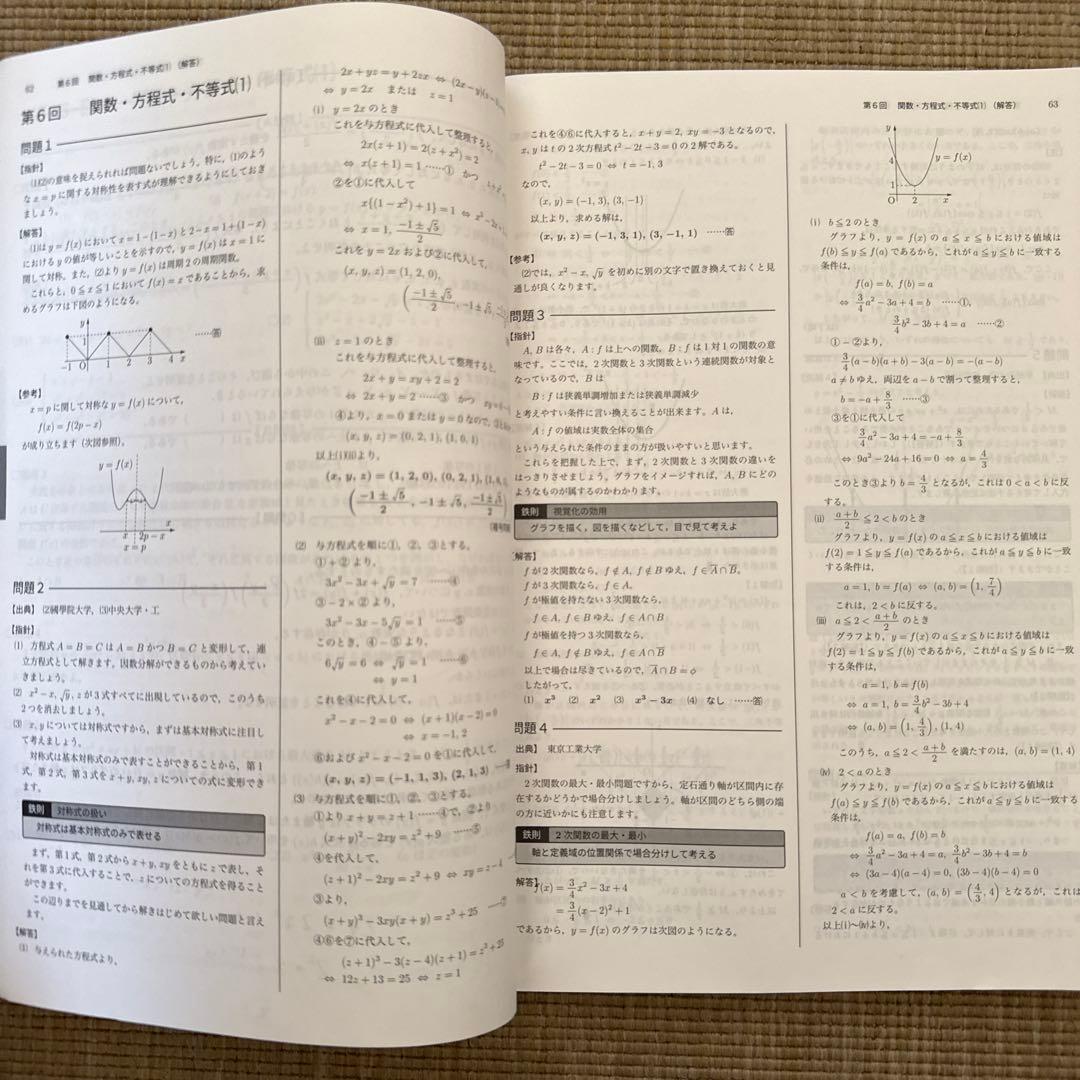 62 第6回 関数・方程式・不等式(1) (解答)
第6回 関数・方程式・不等式(1)
問題1
【指針】
(1)(2)の意味を捉えられれば問題ないでしょう。特に，(1)のよう
なx=pに関する対称性を表す式が理解できるようにしておき
ましょう。
【解答】
(1)はy=f(x)においてx=1-(1-x)と2-x=1+(1-x)
におけるyの値が等しいことを示すので，y=f(x)はx=1に
関して対称。また，(2)よりy=f(x)は周期2の周期関数。
これらと，0≦x≦1においてf(x)=xであることから，求
めるグラフは下図のようになる。
y
1
-1 O 1 2 3 4 x
……答
【参考】
x=pに関して対称なy=f(x)について，
f(x)=f(2p-x)
が成り立ちます（次図参照）。
y=f(x)
x 2p-x x
x=p
問題2
【出典】 (2)國學院大学，(3)中央大学・工
【指針】
(1) 方程式A=B=CはA=BかつB=Cと変形して，連
立方程式として解きます。因数分解ができるものから考えてい
きましょう。
(2) x²-x, √y, zが3式すべてに出現しているので，このうち
2つを消去しましょう。
(3) x, yについては対称式ですから，まずは基本対称式に注目し
て考えましょう。
対称式は基本対称式のみで表すことができることから，第1
式，第2式，第3式をx+y, xy, zについての式に変形でき
ます。
鉄則 対称式の扱い
対称式は基本対称式のみで表せる
まず，第1式，第2式からx+y, xyをともにzで表し，そ
れを第3式に代入することで，zについての方程式を得ること
ができます。
この辺りまでを見通してから解きはじめて欲しい問題と言え
ます。
【解答】
(1) 与えられた方程式より，
2x+yz=y+2zx ⇔ (2x-y)(z-1)
⇔ y=2x または z=1
(i) y=2xのとき
これを与方程式に代入して整理すると，
2x(z+1)=2(z+x²)=2
⇔ x(z+1)=1 ……① かつ
②を①に代入して
x{(1-x²)+1}=1 ⇔ x³-2x
⇔ x=1, (-1±√5)/2
これをy=2xおよび②に代入して，
(x, y, z)=(1, 2, 0),
((-1±√5)/2, -1±√5,
(ii) z=1のとき
これを与方程式に代入して整理すると，
2x+y=xy+2=2
⇔ 2x+y=2 ……③ かつ xy=
④より，x=0またはy=0なので，
(x, y, z)=(0, 2, 1), (1, 0, 1)
以上(i)(ii)より，
(x, y, z)=(1, 2, 0), (0, 2, 1),
((-1±√5)/2, -1±√5, (-1±√5)/2)
(2) 与方程式を順に①，②，③とする。
①+②より，
3x²-3x+√y=7 ……④
③-2×②より，
3x²-3x-5√y=1 ……⑤
このとき，④-⑤より，
6√y=6 ⇔ √y=1 ……⑥
⇔ y=1
これを④に代入して，
x²-x-2=0 ⇔ (x+1)(x-2)=0
⇔ x=-1, 2
⑥およびx²-x-2=0を①に代入して，
(x, y, z)=(-1, 1, 3), (2, 1, 3)
(3) 与方程式を順に①，②，③とする。
①よりx+y=z+1 ……④で，②より
(x+y)²-2xy=z²+9 ……⑤
④を代入して，
(z+1)²-2xy=z²+9 ⇔ xy=z-4
③より，
(x+y)³-3xy(x+y)=z³+25
④⑥を⑦に代入して，
(z+1)³-3(z-4)(z+1)=z³+25
⇔ 12z+13=25 ⇔ z=1
第6回 関数・方程式・不等式(1) (解答) 63
これを④⑥に代入すると，x+y=2, xy=-3となるので，
x, yはtの2次方程式t²-2t-3=0の2解である。
t²-2t-3=0 ⇔ t=-1, 3
なので，
(x, y)=(-1, 3), (3, -1)
以上より，求める解は，
(x, y, z)=(-1, 3, 1), (3, -1, 1) ……答
【参考】
(2)では，x²-x, √yを初めに別の文字で置き換えておくと見
通しが良くなります。
問題3
【指針】
A, Bは各々，A：fは上への関数，B：fは1対1の関数の意
味です。ここでは，2次関数と3次関数という連続関数が対象と
なっているので，Bは
B：fは狭義単調増加または狭義単調減少
と考えやすい条件に言い換えることが出来ます。Aは，
A：fの値域は実数全体の集合
という与えられた条件のままの方が扱いやすいと思います。
これらを把握した上で，まず，2次関数と3次関数の違いを
はっきりさせましょう。グラフをイメージすれば，A, Bにどの
ようなものが属するのかわかります。
鉄則 視覚化の効用
グラフを描く，図を描くなどして，目で見て考えよ
解答】
fが2次関数なら，f∉A, f∉Bゆえ，f∈A̅∩B̅。
fが3次関数なら，f∈A。
fが極値を持たない3次関数なら，
f∈A, f∈Bゆえ，f∈A∩B
fが極値を持つ3次関数なら，
f∈A, f∉Bゆえ，f∈A∩B̅
以上で場合は尽きているので，A̅∩B=φ
したがって，
(1) x³ (2) x² (3) x³-3x (4) なし ……答
問題4
出典】 東京工業大学
指針】
2次関数の最大・最小問題ですから，定石通り軸が区間内に存
在するかどうかで場合分けしましょう。軸が区間のどちら側の端
の方に近いかにも注意します。
鉄則 2次関数の最大・最小
軸と定義域の位置関係で場合分けして考える
解答】
f(x)=3/4x²-3x+4
=3/4(x-2)²+1
であるから，y=f(x)のグラフは次図のようになる。
y
4
1
O 2 x
y=f(x)
(i) b≦2のとき
グラフより，y=f(x)のa≦x≦bにおける値域は
f(b)≦y≦f(a)であるから，これがa≦y≦bに一致する
条件は，
f(a)=b, f(b)=a
⇔ 3/4a²-3a+4=b ……①，
3/4b²-3b+4=a ……②
①-②より，
3/4(a-b)(a+b)-3(a-b)=-(a-b)
a≠bゆえ，両辺をa-bで割って整理すると，
b=-a+8/3 ……③
③を①に代入して
3/4a²-3a+4=-a+8/3
⇔ 9a²-24a+16=0 ⇔ a=4/3
このとき③よりb=4/3となるが，これは0<a<bに反
する。
(ii) (a+b)/2≦2<bのとき
グラフより，y=f(x)のa≦x≦bにおける値域は
f(2)=1≦y≦f(a)であるから，これがa≦y≦bに一致
する条件は，
a=1, b=f(a) ⇔ (a, b)=(1, 7/4)
これは，2<bに反する。
(iii) a≦2<(a+b)/2のとき
グラフより，y=f(x)のa≦x≦bにおける値域は
f(2)=1≦y≦f(b)であるから，これがa≦y≦bに一致
する条件は，
a=1, b=f(b)
⇔ a=1, b=3/4b²-3b+4
⇔ (a, b)=(1, 4/3), (1, 4)
このうち，a≦2<(a+b)/2を満たすのは，(a, b)=(1, 4)
(iv) 2<aのとき
グラフより，y=f(x)のa≦x≦bにおける値域は
f(a)≦y≦f(b)であるから，これがa≦y≦bに一致する
条件は，
f(a)=a, f(b)=b
⇔ 3/4a²-3a+4=a, 3/4b²-3b+4=b
⇔ (3a-4)(a-4)=0, (3b-4)(b-4)=0
a<bを考慮して，(a, b)=(4/3, 4)となるが，これは
2<aに反する。
以上(i)～(iv)より，